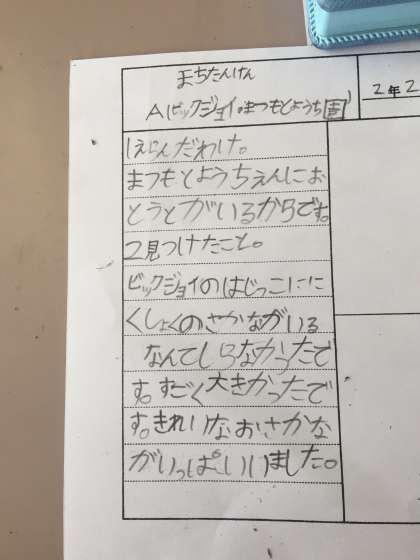 まちたんけん
A(ビックジョイ.まつもとようち園)
2年2
1えらんだわけ。
まつもとようちえんにお
とうとがいるからです。
2見つけたこと。
ビックジョイのはじっこにに
くしょくのさかながいる
なんてしらなかったで
す。すごく大きかったで
す。きれいなおさかな
がいっぱいいました。